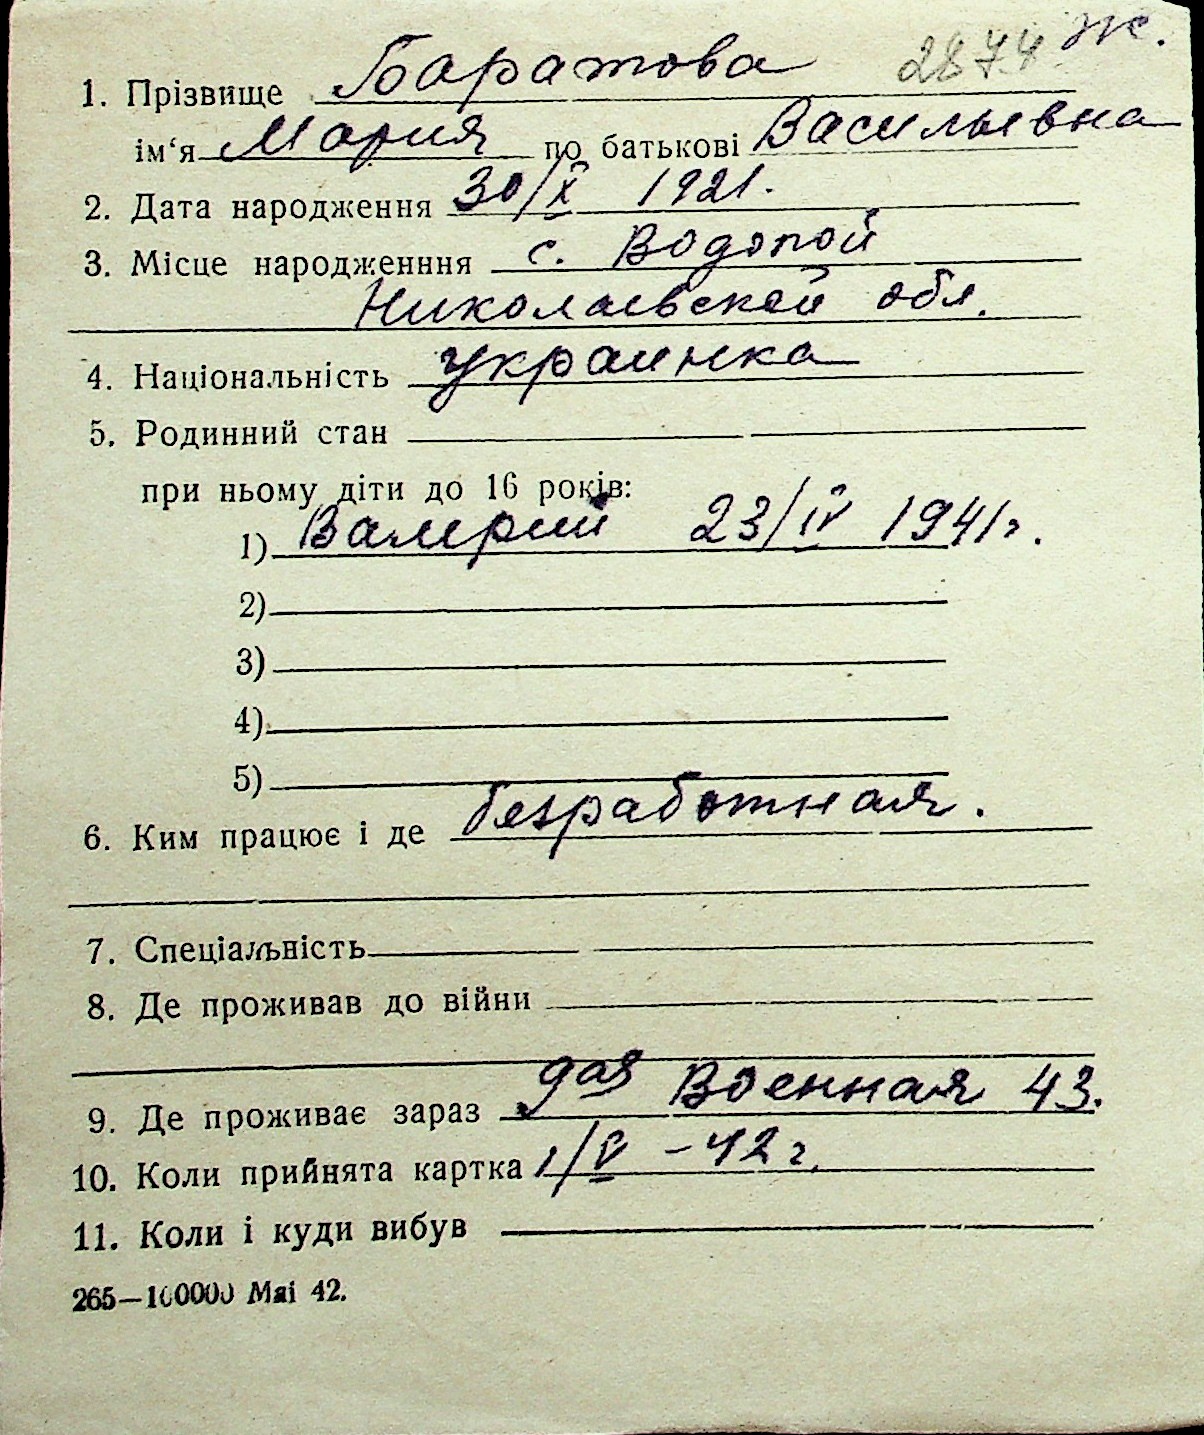 2874 Ж.
1. Прізвище Баратова
ім'я Мария по батькові Васильевна
2. Дата народження 30/X 1921.
3. Місце народженння с. Водопой
Николаевской обл.
4. Національність украинка
5. Родинний стан
при ньому діти до 16 років:
1) Валерий 23/IV 1941 г.
2)
3)
4)
5)
6. Ким працює і де безработная.
7. Спеціальність
8. Де проживав до війни
9. Де проживає зараз Военная 43.
10. Коли прийнята картка 1/V - 42 г.
11. Коли і куди вибув
265—100000 Mai 42.